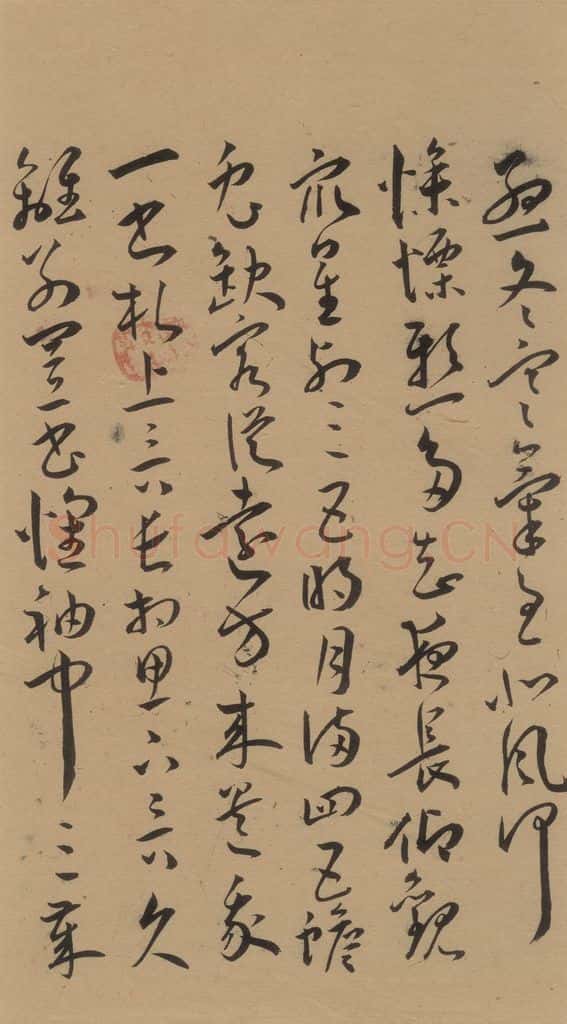 孟冬寒氣至北風何
慘慄愁多知夜長仰觀
衆星列三五明月滿四五蟾
兔缺客從遠方來遺我
一書札上言長相思下言久
離別置書懷袖中三歲
Shufawang.CN